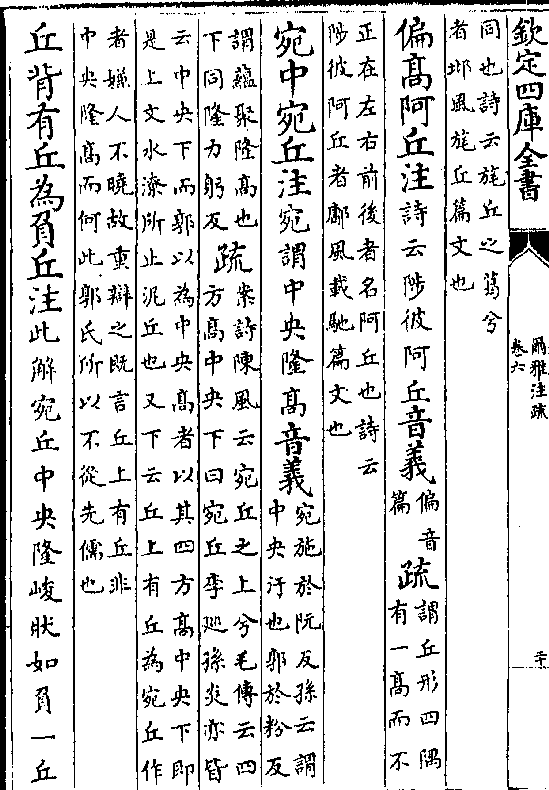 欽定四庫全書
爾雅注疏
卷六
二十
同也詩云旄丘之葛兮
者邶風旄丘篇文也
偏髙阿丘注詩云陟彼阿丘音義偏音篇疏謂丘形四隅有一髙而不
正在左右前後者名阿丘也詩云
陟彼阿丘者鄘風載馳篇文也
宛中宛丘注宛謂中央隆髙音義宛施於阮反孫云謂中央汙也郭於粉反
謂藴聚隆髙也下同隆力躬反疏案詩陳風云宛丘之上兮毛傳云四方髙中央下曰宛丘李廵孫炎亦皆
云中央下而郭以為中央髙者以其四方髙中央下即
是上文水潦所止泥丘也又下云丘上有丘為宛丘作
者嫌人不曉故重辯之既言丘上有丘非
中央隆髙而何此郭氏所以不從先儒也
丘背有丘為負丘注此解宛丘中央隆峻狀如負一丘